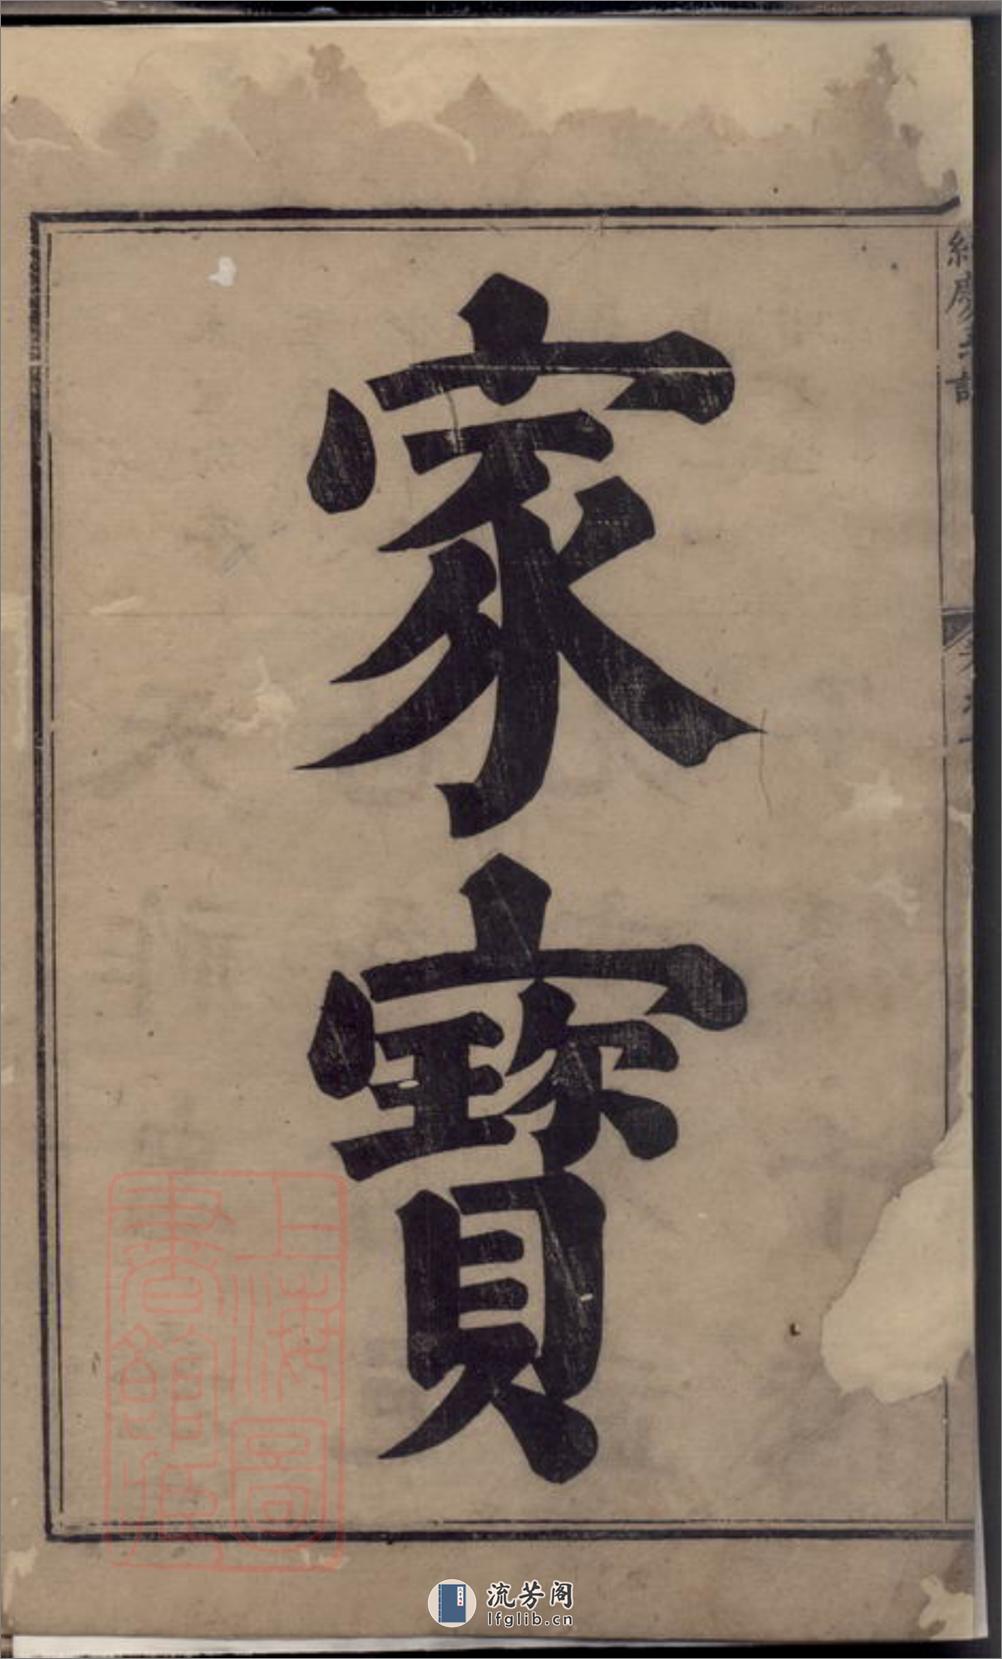 家寶
上海圖
書館藏
流芳阁
lfglib.cn